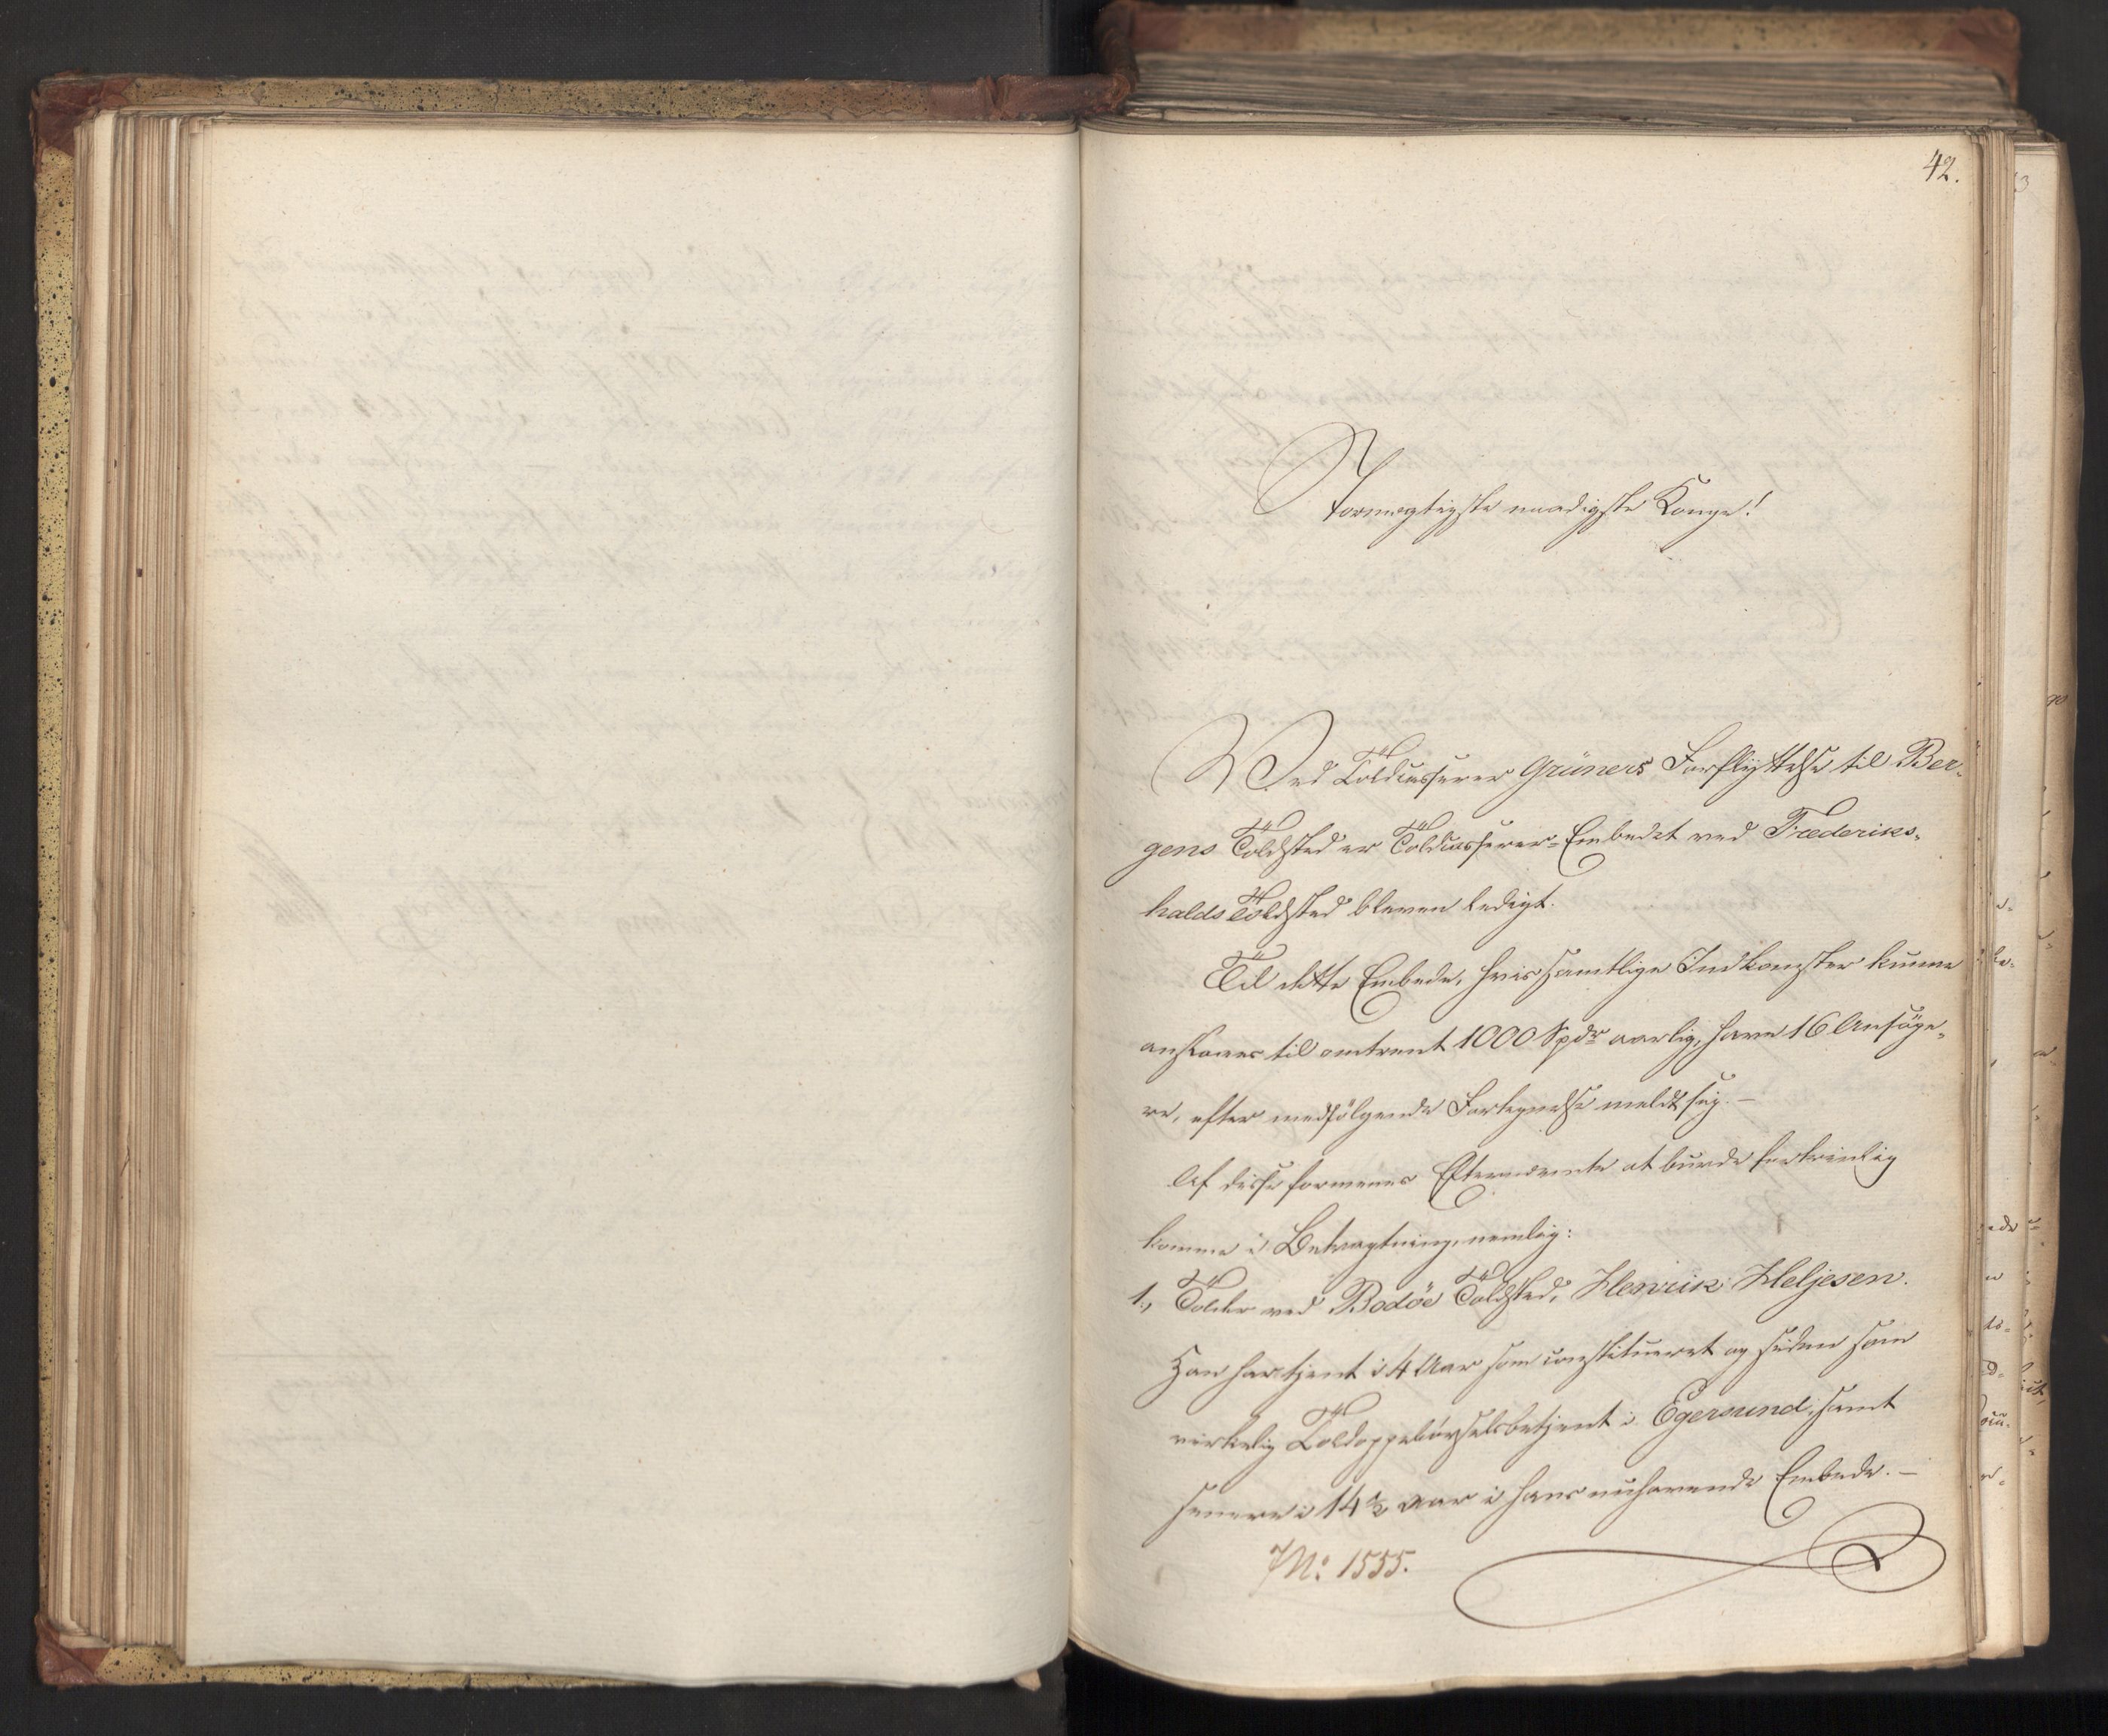 42.
Stormægtigste naadigste Konge!
Ved Toldcasserer Grüners Forflyttelse til Ber-
gens Toldsted er Toldcasserer-Embedet ved Frederiks-
halds Toldsted bleven ledigt.
Til dette Embede, hvis samtlige Indkomster kunne
ansloaes til omtrent 1000 Spdr aarlig, have 16 Ansøge-
re, efter medfølgende Fortegnelse meldt sig. —
Af disse formenes Efternævnte at burde fortrinlig
komme i Betragtning, nemlig:
1, Tolder ved Bodøe Toldsted, Henrik Heljesen.
Han har tjent i 4 Aar som constitueret og siden som
virkelig Toldoppebørselsbetjent i Egersund, samt
senere i 14½ Aar i hans nuhavende Embede. —
JN: 1555.